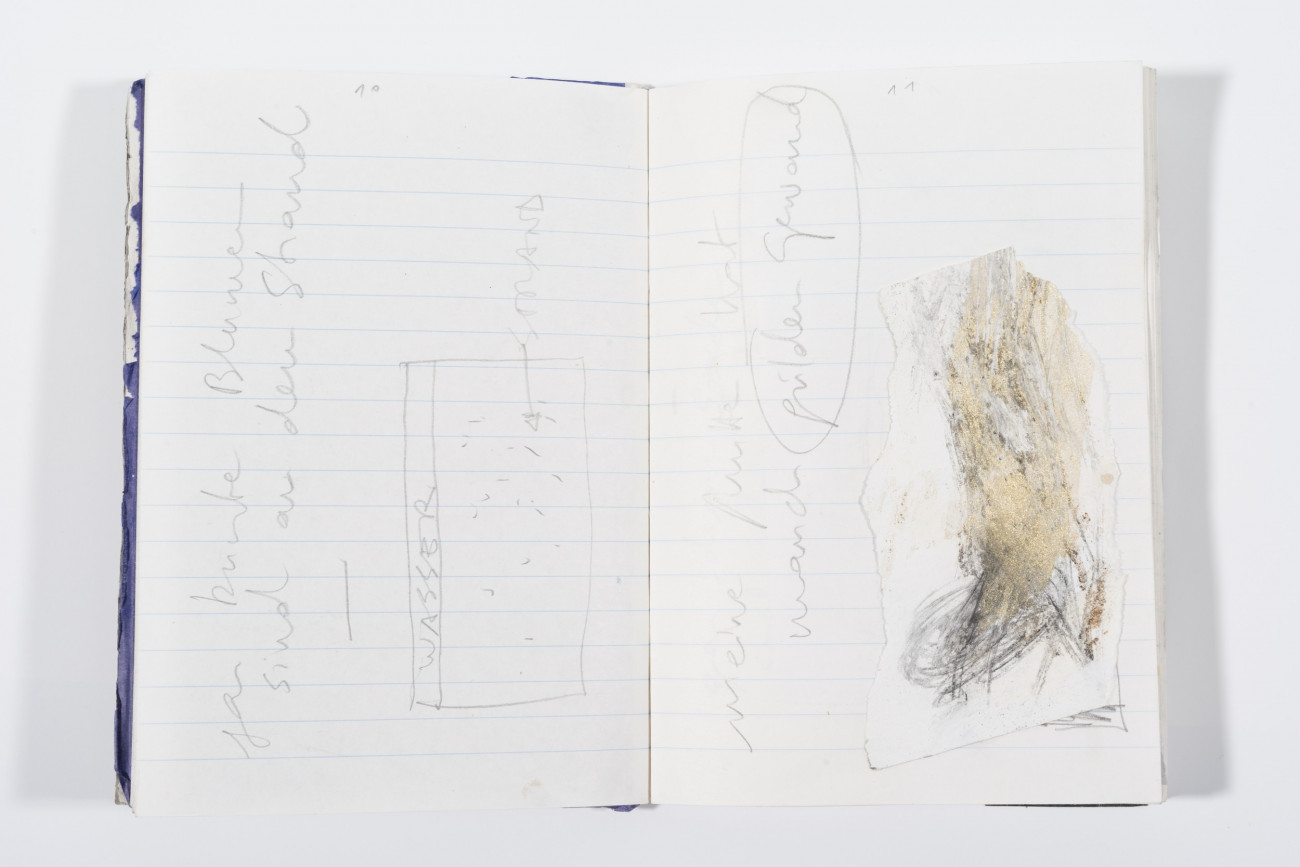 10
gar bunte Blumen—
sind an dem Strand
WASSER
STRAND
11
meine Mutter hat
manch gülden Gewand